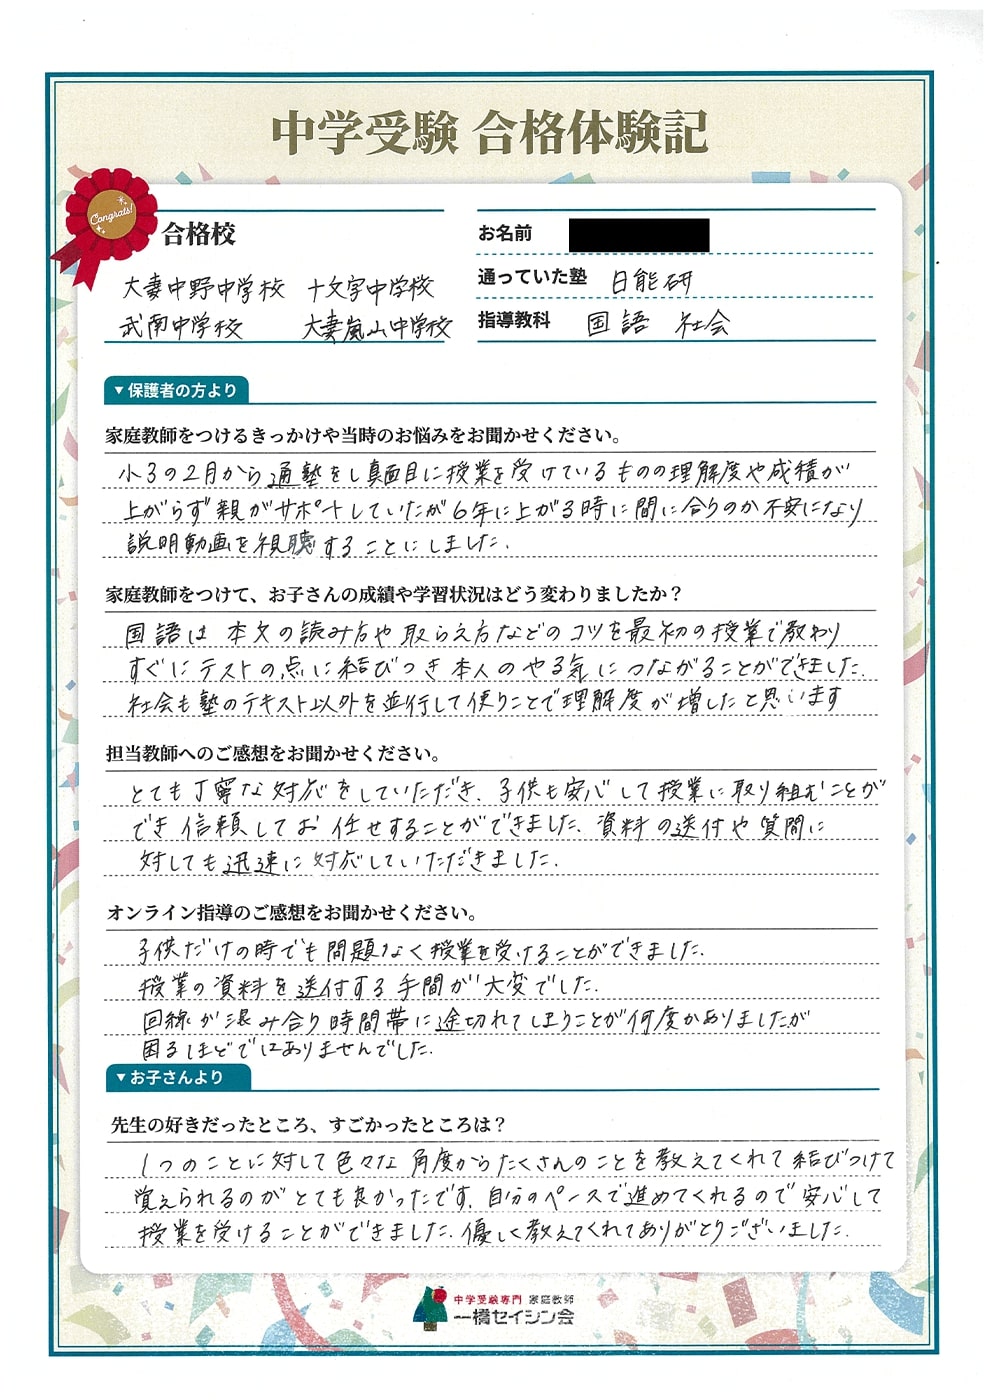 中学受験 合格体験記
Congrats!
合格校
大妻中野中学校 十文字中学校
武南中学校 大妻嵐山中学校
お名前
通っていた塾 日能研
指導教科 国語 社会
▼保護者の方より
家庭教師をつけるきっかけや当時のお悩みをお聞かせください。
小3の2月から通塾をし真面目に授業を受けているものの理解度や成積が
上がらず親がサポートしていたが6年に上がる時に間に合うのか不安になり
説明動画を視聴することにしました.
家庭教師をつけて、お子さんの成績や学習状況はどう変わりましたか？
国語は本文の読み方や取らえ方などのコツを最初の授業で教わり
すぐにテストの点に結びつき本人のやる気につながることができました.
社会も塾のテキスト以外を並行して使うことで理解度が増したと思います
担当教師へのご感想をお聞かせください。
とても丁寧な対応をしていただき、子供も安心して授業に取り組むことが
でき信頼してお任せすることができました、資料の送付や質問に
対しても迅速に対応していただきました.
オンライン指導のご感想をお聞かせください。
子供だけの時でも問題なく授業を受けることができました.
授業の資料を送付する手間が大変でした.
回線が混み合う時間帯に途切れてしまうことが何度かありましたが
困るほどではありませんでした.
▼お子さんより
先生の好きだったところ、すごかったところは？
1つのことに対して色々な角度からたくさんのことを教えてくれて結びつけて
覚えられるのがとても良かったです.自分のペースで進めてくれるので安心して
授業を受けることができました.優しく教えてくれてありがとうございました.
中学受験専門 家庭教師
一橋セイシン会